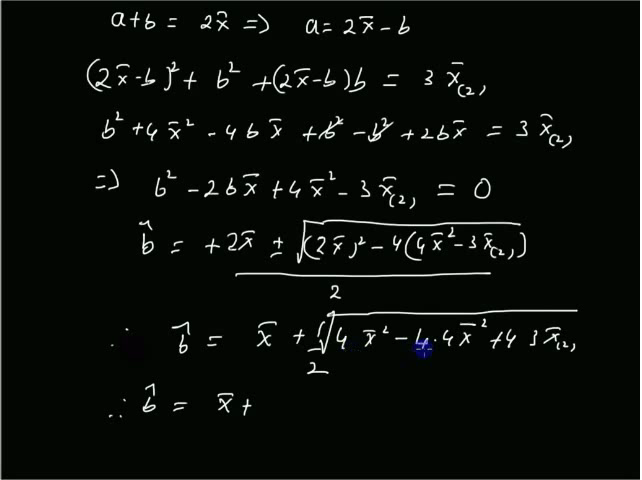 a+b = 2x̄ => a = 2x̄-b
(2x̄-b)² + b² + (2x̄-b)b = 3 x̄₍₂₎
b² + 4x̄² - 4bx̄ + b² - b² + 2bx̄ = 3 x̄₍₂₎
=> b² - 2bx̄ + 4x̄² - 3x̄₍₂₎ = 0
b̂ = +2x̄ ± √((2x̄)² - 4(4x̄² - 3x̄₍₂₎))
2
∴ b̂ = x̄ + 1/2 √(4x̄² - 4·4x̄² + 4 3x̄₍₂₎
∴ b̂ = x̄ +